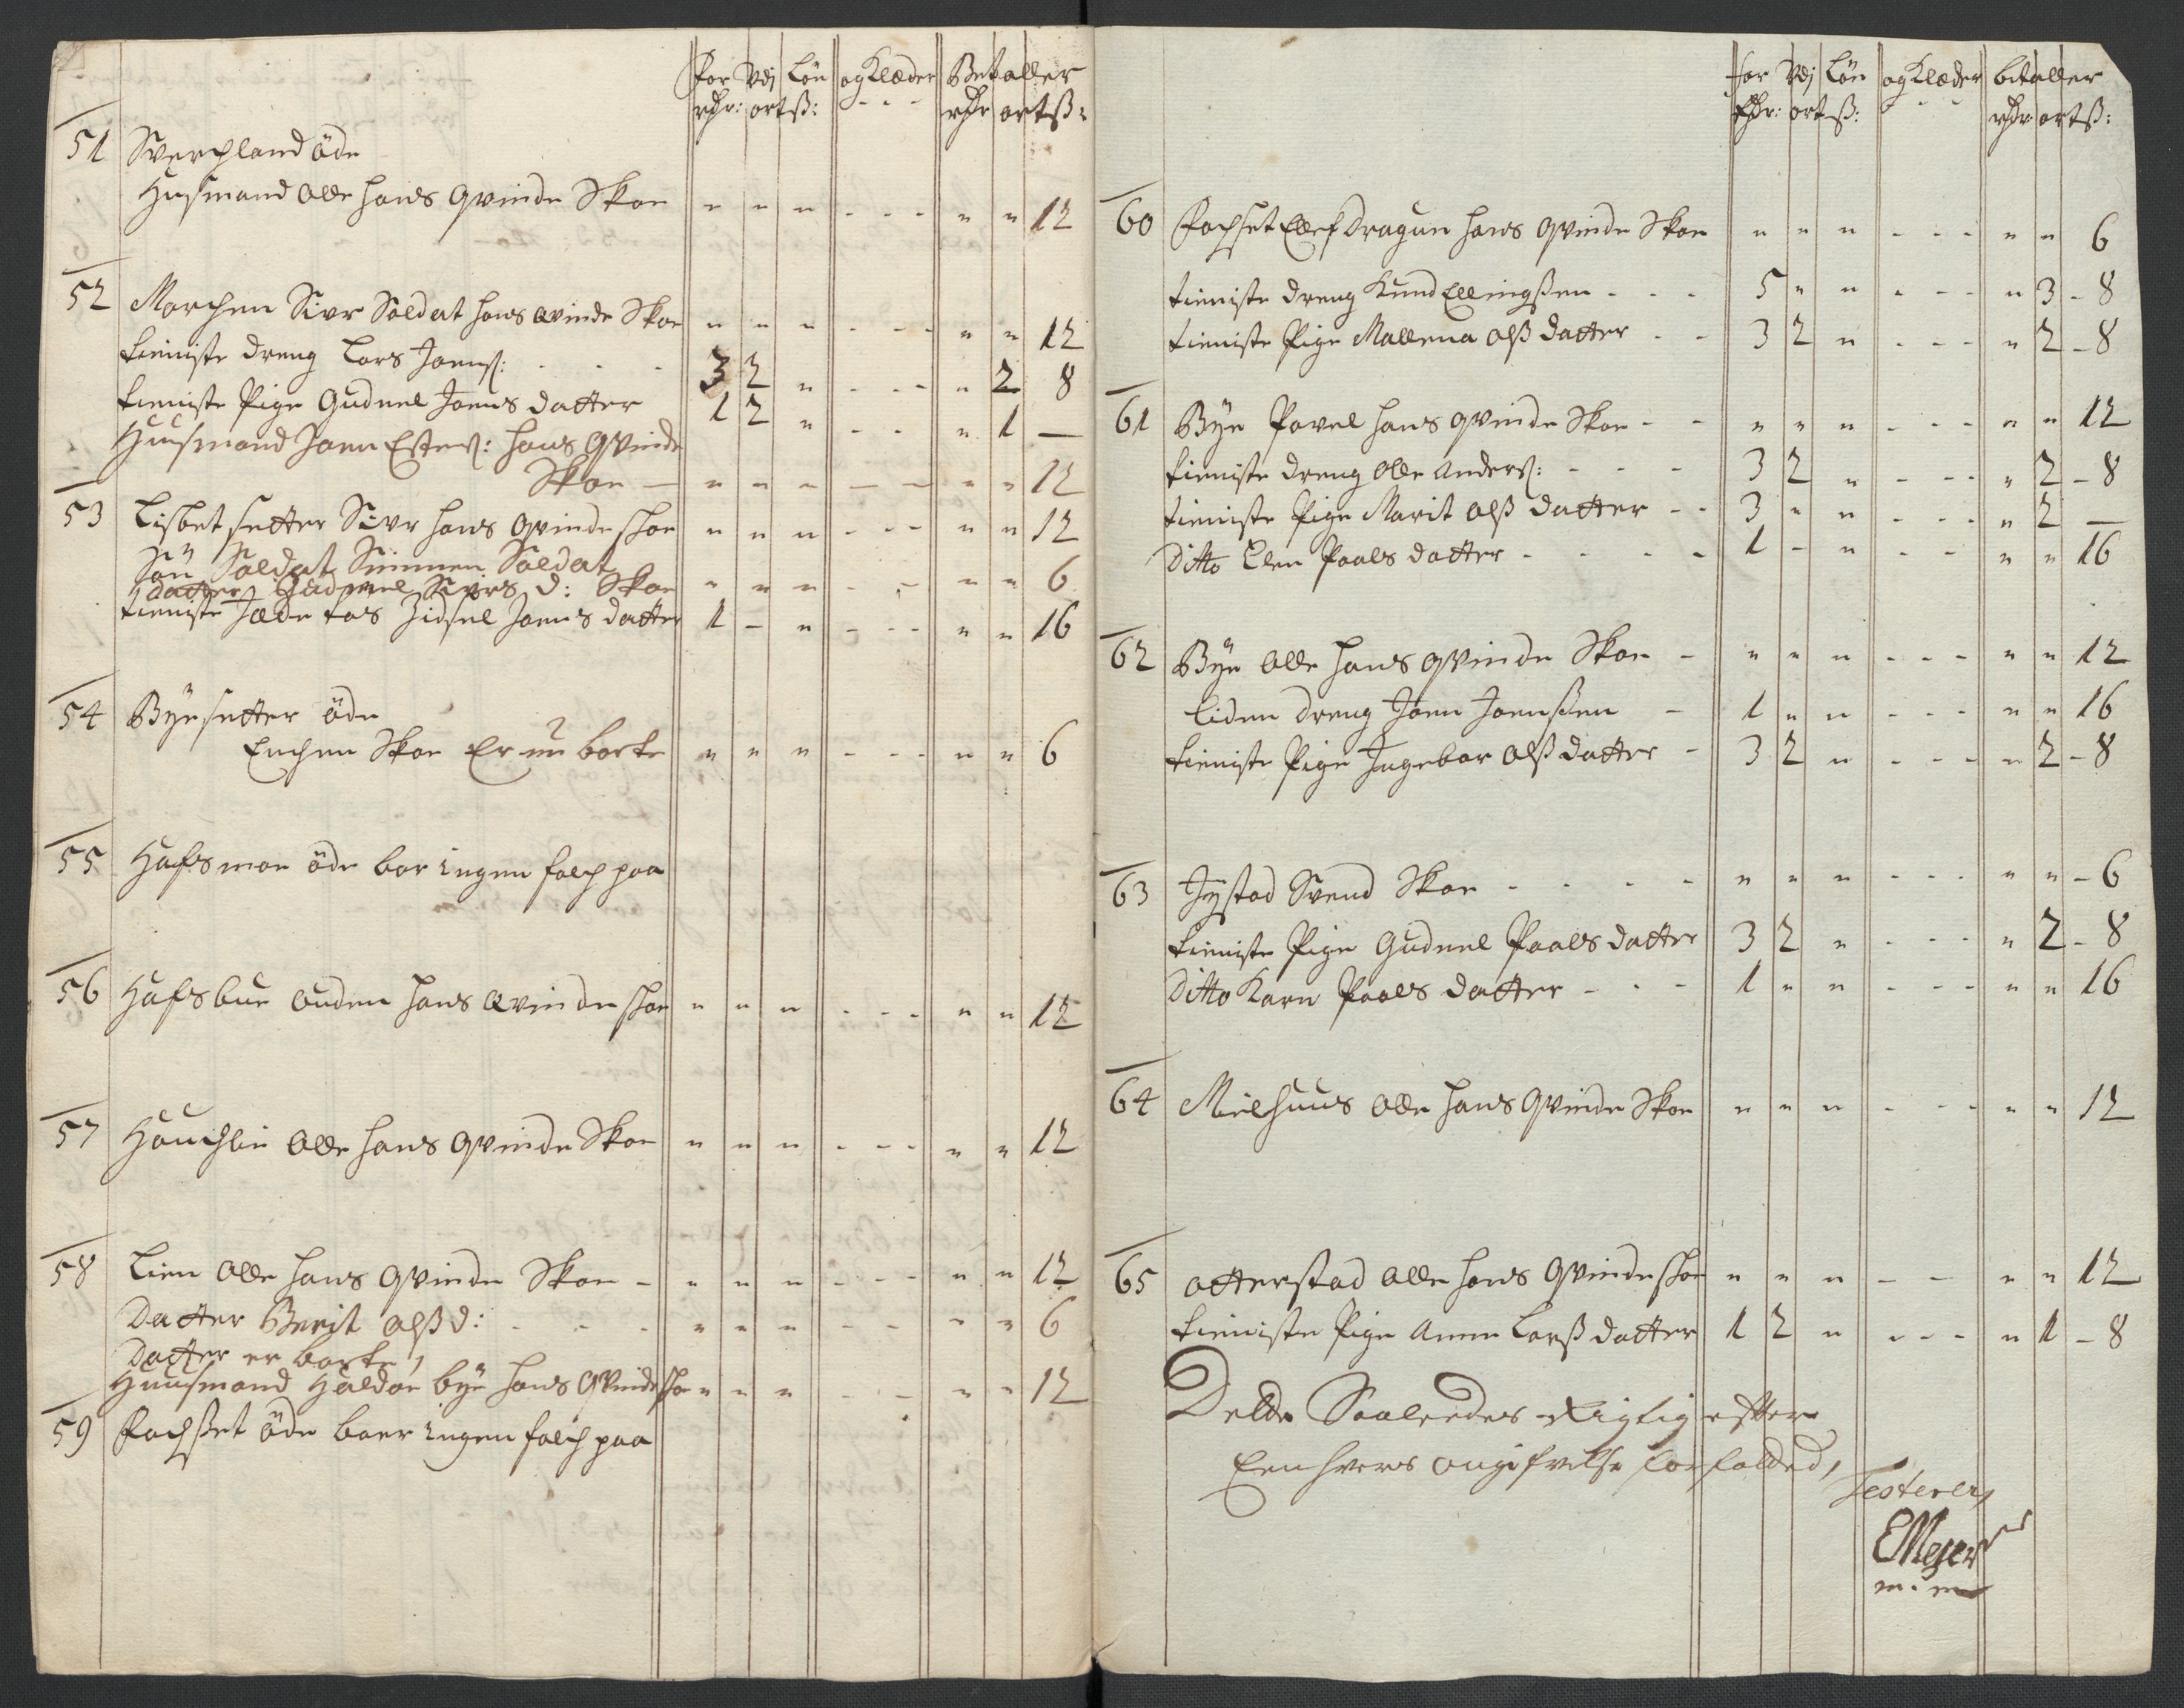 For Vdj Løn og Klæder Betaller
rdr: ort ß: - - - rdr ort ß:
51 Sverchland öde
Husmand Olle hans qvinde Skoe " " " - - - " " 12
52 Marchen Sivr Soldat hans qvinde Skoe " " " - - - " " 12
tieniste dreng Lars Joenß: - - - 3 2 " - - - " 2 8
tieniste Pige Gudnel Joens datter 1 2 " - - " 1 —
Huusmand Joen Estenß: hans Qvinde
Skoe — " " " — — " " 12
53 Lisbet setter Sivr hans qvinde skoe " " " - - - " " 12
Sön Soldat Simmen Soldat
datter Gudnel Sivrs d: Skoe " " " - - " " 6
tieniste Jæde tøs Zidsel Joens datter 1 - " - - - " " 16
54 Byesetter öde
Enchen Skoe Er nu borte " " " - - - " " 6
55 Hafsmoe öde bor ingen folch paa
56 Hafsbue Auden hans Qvinde skoe " " " - - - " " 12
57 Hauchlie Olle hans qvinde Skoe " " " - - - " " 12
58 Lien Olle hans qvinde Skoe - " " " - - - " " 12
Datter Berit Olß d: - - - " " " - - " " 6
Datter er borte,
Huusmand Haldoe bye hans Qvinde skoe " " " - - " " 12
59 Fochset öde boer ingen folch paa
for Vdj Løn og Klæder betaller
rdr: ort ß: - - rdr ort ß:
60 Fochset Ellef Dragun hans qvinde Skoe " " " - - - " " 6
tieniste dreng Knud Ellingßen - - - 5 " " - - - " 3 - 8
tieniste Pige Mallena Olß datter - - 3 2 " - - - " 2 - 8
61 Bye Povel hans qvinde Skoe - - " " " - - - " " 12
tieniste dreng Olle Anderß: - - - 3 2 " - - - " 2 - 8
tieniste Pige Marit Olß datter - - 3 " " - - - " 2 —
Ditto Elen Paals datter - - - - 1 - " - - " " 16
62 Bye Olle hans qvinde Skoe - " " " - - - " " 12
liden dreng Joen Joenßen - 1 " " - - - " " 16
tieniste Pige Ingebor Olß datter - 3 2 " - - - " 2 - 8
63 Jystad Svend Skoe - - - - " " " - - - " " - 6
tieniste Pige Gudnel Paals datter 3 2 " - - - " 2 - 8
Ditto Karn Paals datter - - - 1 " " - - - " " 16
64 Mielhuus Olle hans Qvinde Skoe " " " - - - " " 12
65 Otterstad Olle hans Qvinde skoe " " " - - " " 12
tieniste Pige Anne Larß datter 1 2 " - - - " 1 - 8
Dette Saaledes Rigtig efter
Een hvers angifvelse forfatted,
Testerer
EMeyer
m. m